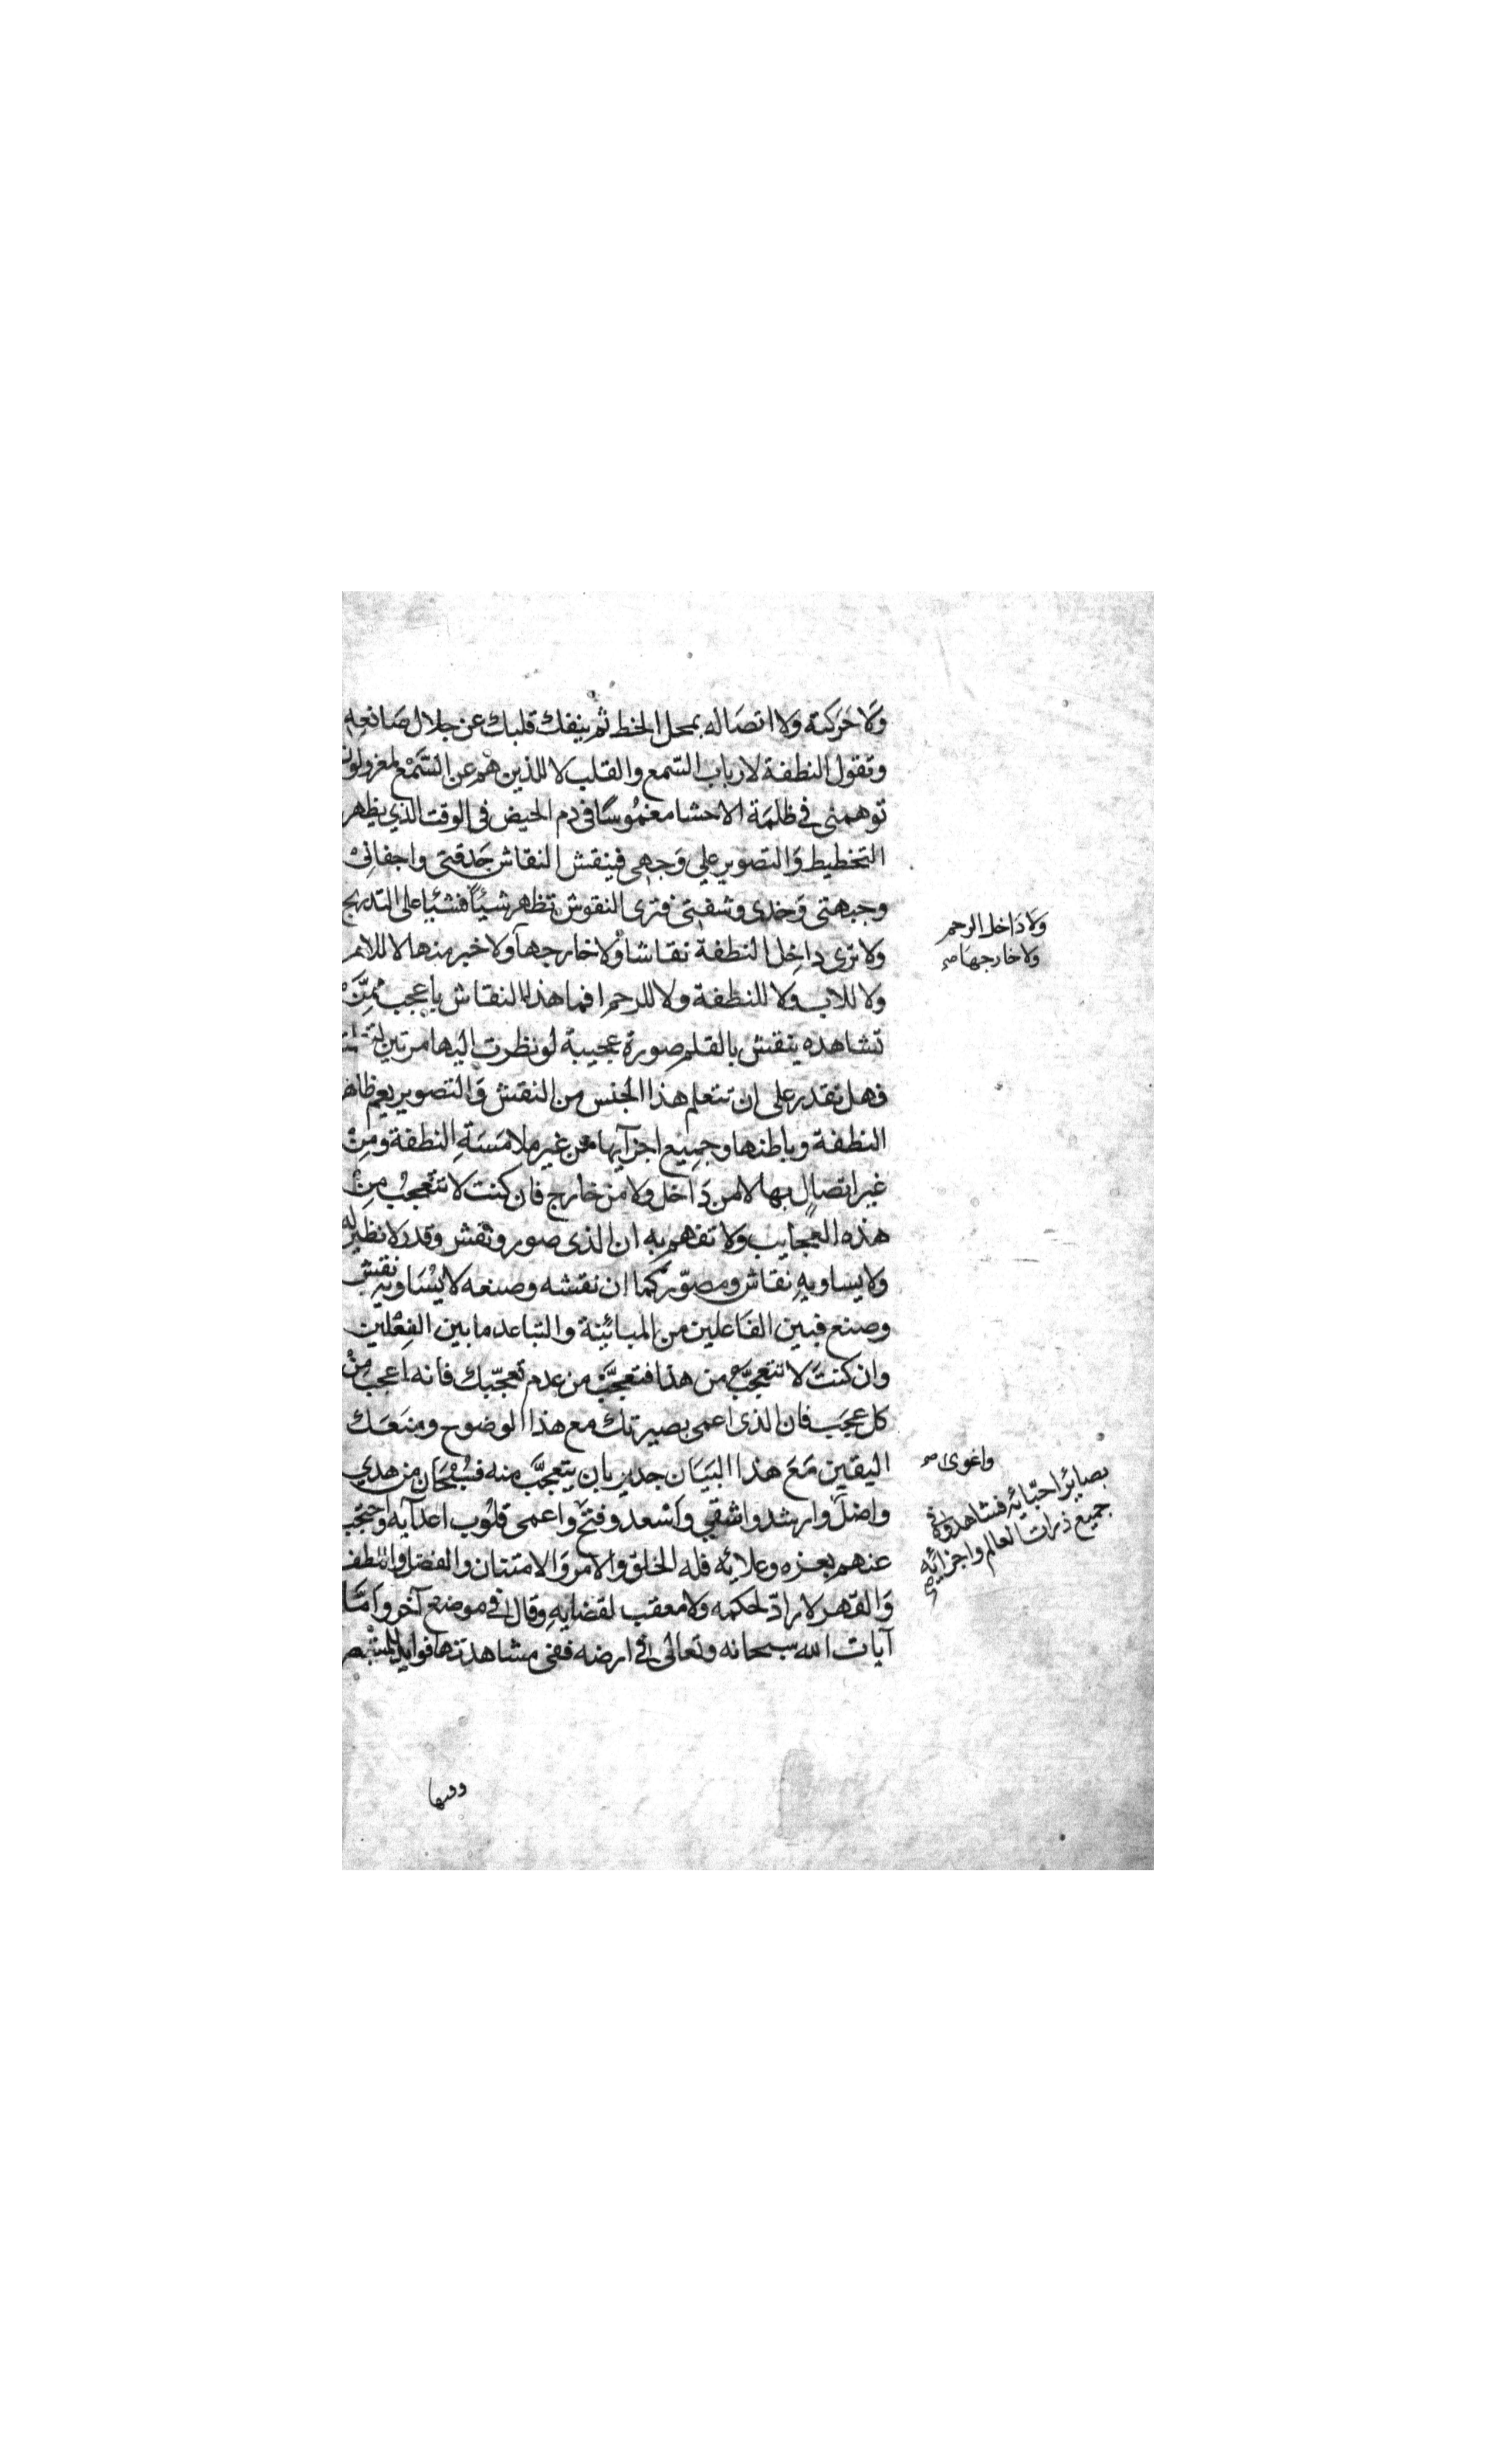 ولا حركته ولا اتصاله بمحل الخط ثم ينفك قلبك عن جلال صانعه
وتقول النطفة لارباب السمع والقلب لا للذين هم عن السمع لمعزولون
توهمنى في ظلمة الاحشا مغموسا في دم الحيض في الوقت الذي يظهر
التخطيط والتصوير علي وجهى فينقش النقاش حدقتى واجفانى
وجبهتى وخدى وشفتى فترى النقوش تظهر شيئا فشيئا على التدريج
ولا ترى داخل النطفة نقاشا ولا خارجها ولا خبر منها لا للام
ولا داخل الرحم
ولا خارجها صح
ولا للاب ولا للنطفة ولا للرحم افما هذا النقاش باعجب ممن
تشاهده ينقش بالقلم صورة عجيبة لو نظرت اليها مرتين
فهل تقدر على ان تتعلم هذا الجنس من النقش والتصوير يعم ظاهر
النطفة وباطنها وجميع اجزآيها من غير ملامسة النطفة ومن
غير اتصال بها لا من داخل ولا من خارج فان كنت لا تتعجب من
هذه العجايب ولا تفهم به ان الذى صور ونقش وقدر لا نظير له
ولا يساويه نقاش ومصور كما ان نقشه وصنعه لا يساويه نقش
وصنع فبين الفاعلين من المبائنة والتباعد ما بين الفعلين
وان كنت لا تتعجب من هذا فتعجب من عدم تعجبك فانه اعجب من
كل عجب فان الذى اعمى بصيرتك مع هذا الوضوح ومنعك
اليقين مع هذا البيان جدير بان يتعجب منه فسبحان من هدي
واضل وارشد واشقي واسعد وفتح واعمى قلوب اعدآيه واحتجب
واغوى صح
بصائر احبائه فشاهدوه في
جميع ذرات العالم واجزائه
صح
عنهم بعزه وعلائه فله الخلق والامر والامتنان والفضل واللطف
والقهر لا راد لحكمه ولا معقب لقضايه وقال في موضع آخر واما
آيات الله سبحانه وتعالى في ارضه ففى مشاهدتها فوايد للمستبصر